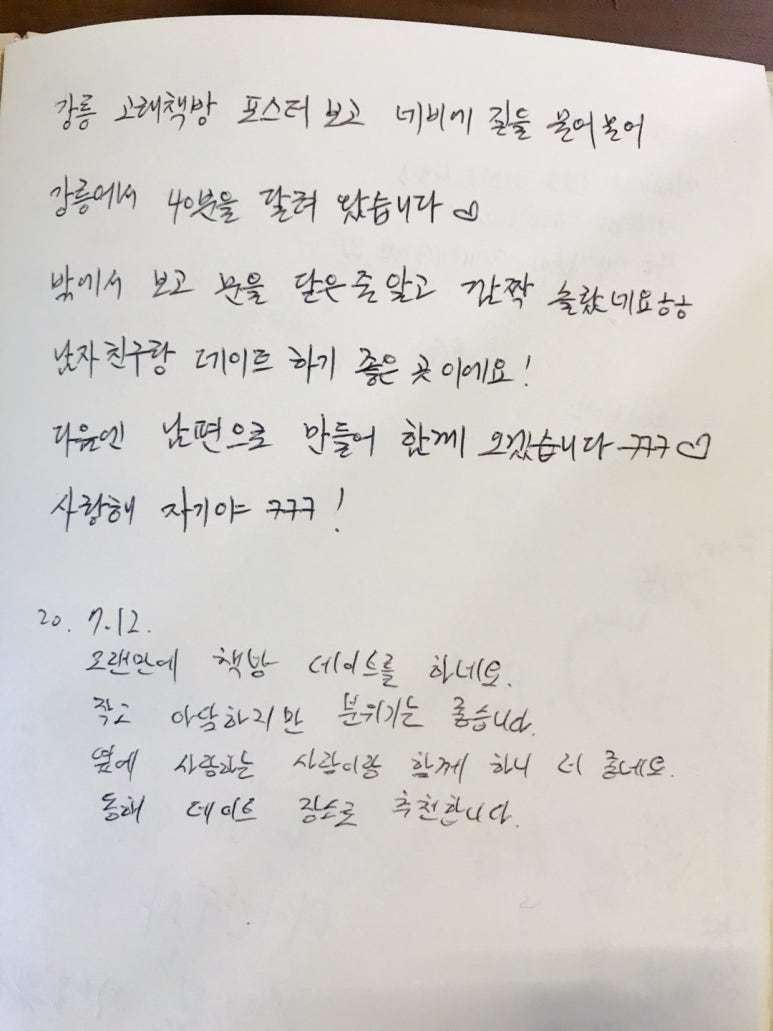 강릉 고래책방 포스터 보고 네비에 길을 물어물어
강릉에서 40분을 달려 왔습니다♡
밖에서 보고 문을 닫은줄알고 깜짝 놀랐네요ㅎㅎ
남자친구랑 데이트 하기 좋은 곳이에요!
다음엔 남편으로 만들어 함께 오겠습니다 ㅋㅋㅋ♡
사랑해 자기야 ㅋㅋㅋ!
20. 7.12.
오랜만에 책방 데이트를 하네요.
작고 아담하지만 분위기는 좋습니다.
옆에 사랑하는 사람이랑 함께 하니 더 좋네요.
동해 데이트 장소로 추천합니다.